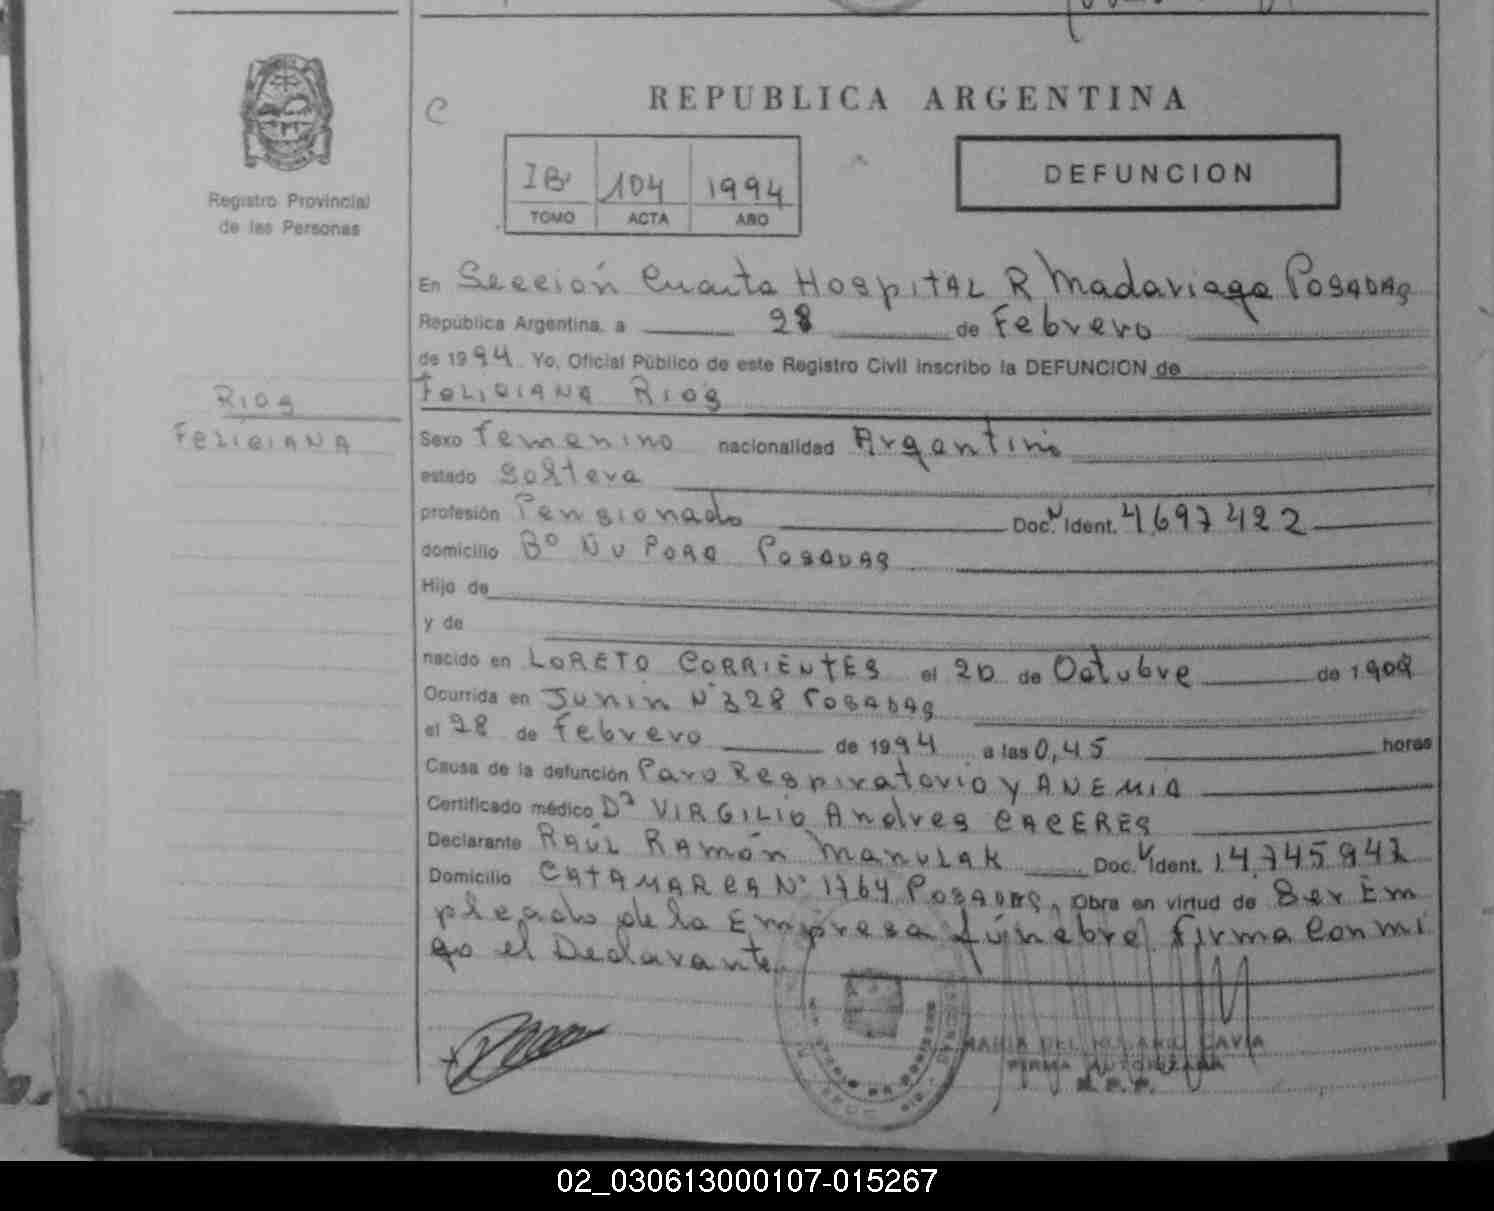 REPUBLICA ARGENTINA
C
Registro Provincial
de las Personas
IBº 104 1994
TOMO ACTA AÑO
DEFUNCION
En Sección Cuarta HOSPITAL R Madariaga POSADAS
República Argentina, a 28 de Febrero
de 1994 Yo, Oficial Público de este Registro Civil inscribo la DEFUNCION de
FELICIANA RIOS
RIOS
FELICIANA
Sexo Femenino nacionalidad Argentino
estado Soltera
profesión Pensionado Doc. Ident. 4,697422
domicilio Bº ÑU PORA POSADAS
Hijo de
y de
nacido en LORETO CORRIENTES el 20 de Octubre de 1909
Ocurrida en Junin Nº328 POSADAS
el 28 de Febrero de 1994 a las 0,45 horas
Causa de la defunción Paro Respiratorio y ANEMIA
Certificado médico Dº VIRGILIO Andres CACERES
Declarante RAÚL RAMÓN MANULAK Doc. Ident. 14,745942
Domicilio CATAMARCA Nº 1764 POSADAS, Obra en virtud de Ser Em
pleado de la Empresa fúnebre firma Con mi
go el Declarante
MARIA DEL ROSARIO CAVIA
FIRMA AUTORIZADA
R. P. P.
02_030613000107-015267